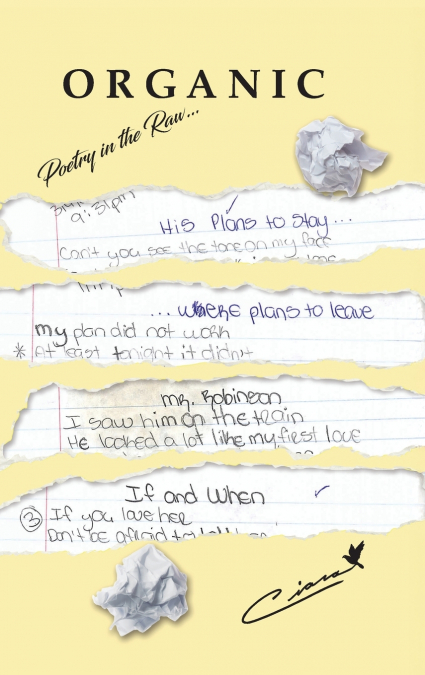 ORGANIC
Poetry in the Raw...
9:31pm
His Plans to Stay...
Can't you see the tone on my face
...where plans to leave
my plan did not work
* At least tonight it didn't
mr. Robinson
I saw him on the train
He looked a lot like my first love
If and When
3 If you love her
Don't be afraid to
Ciara